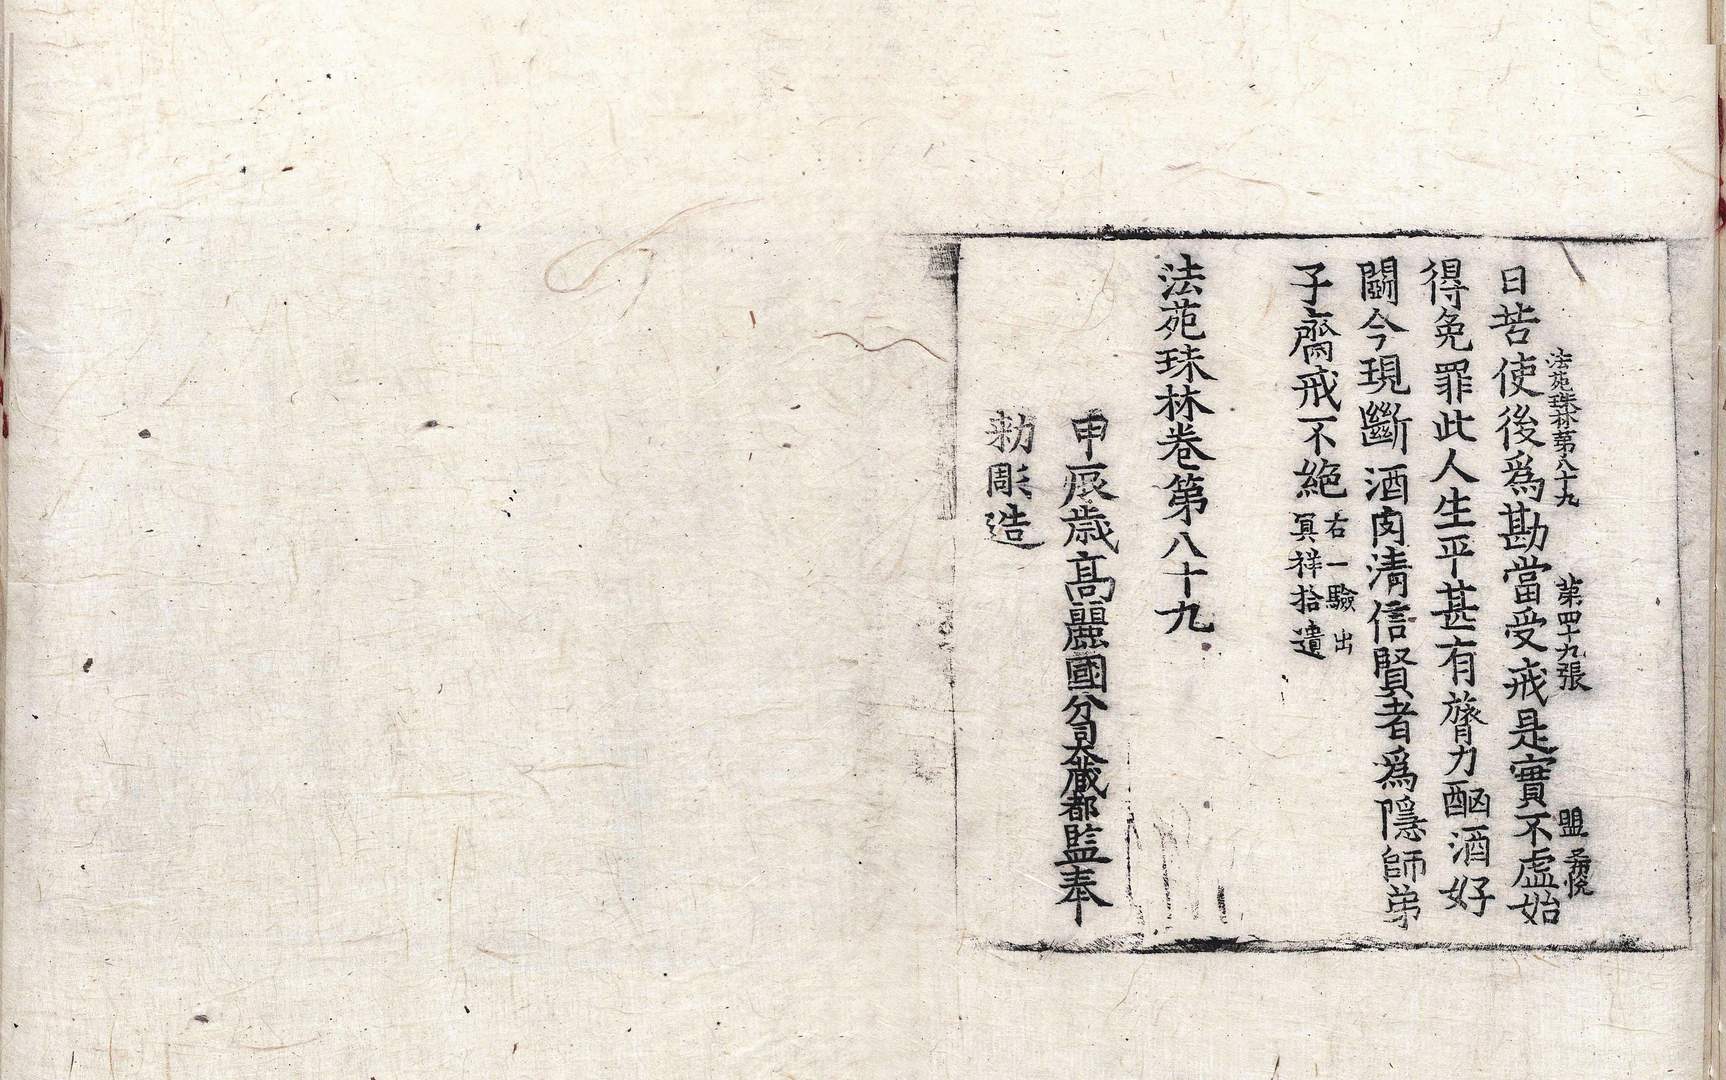 法苑珠林第八十九 第四十九張 盟 孟悅
日苦使後爲勘當受戒是實不虛始
得免罪此人生平甚有膂力酗酒好
鬪今現斷酒肉清信賢者爲隱師弟
子齋戒不絶右一驗出冥祥拾遺
法苑珠林卷第八十九
甲辰歲高麗國分司大藏都監奉
勑彫造